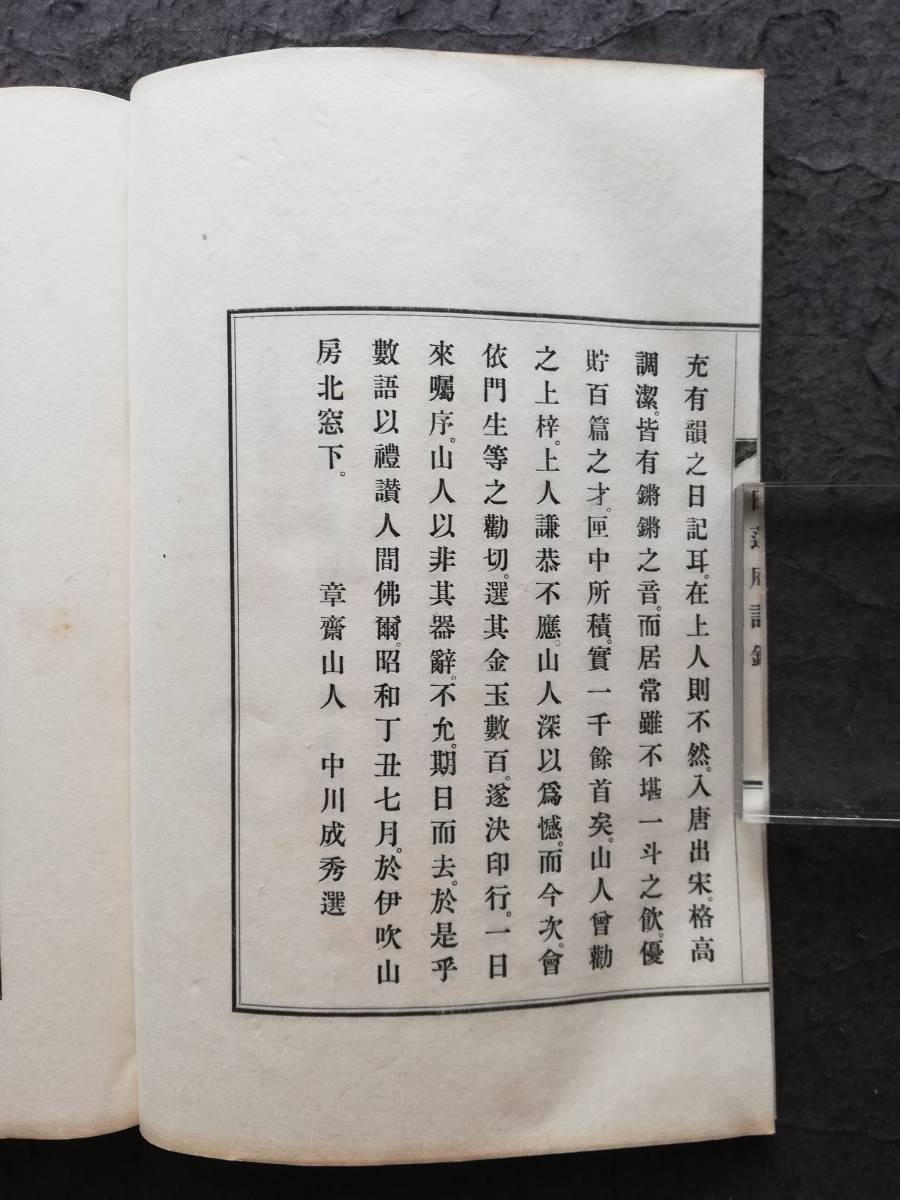 充有韻之日記耳。在上人則不然。入唐出宋。格高
調潔。皆有鏘鏘之音。而居常雖不堪一斗之飮。優
貯百篇之才。匣中所積。實一千餘首矣。山人曾勸
之上梓。上人謙恭不應。山人深以爲憾。而今次。會
依門生等之勸切。選其金玉數百。遂決印行。一日
來囑序。山人以非其器辭。不允。期日而去。於是乎
數語以禮讃人間佛爾。昭和丁丑七月。於伊吹山
房北窓下。
章齋山人 中川成秀選